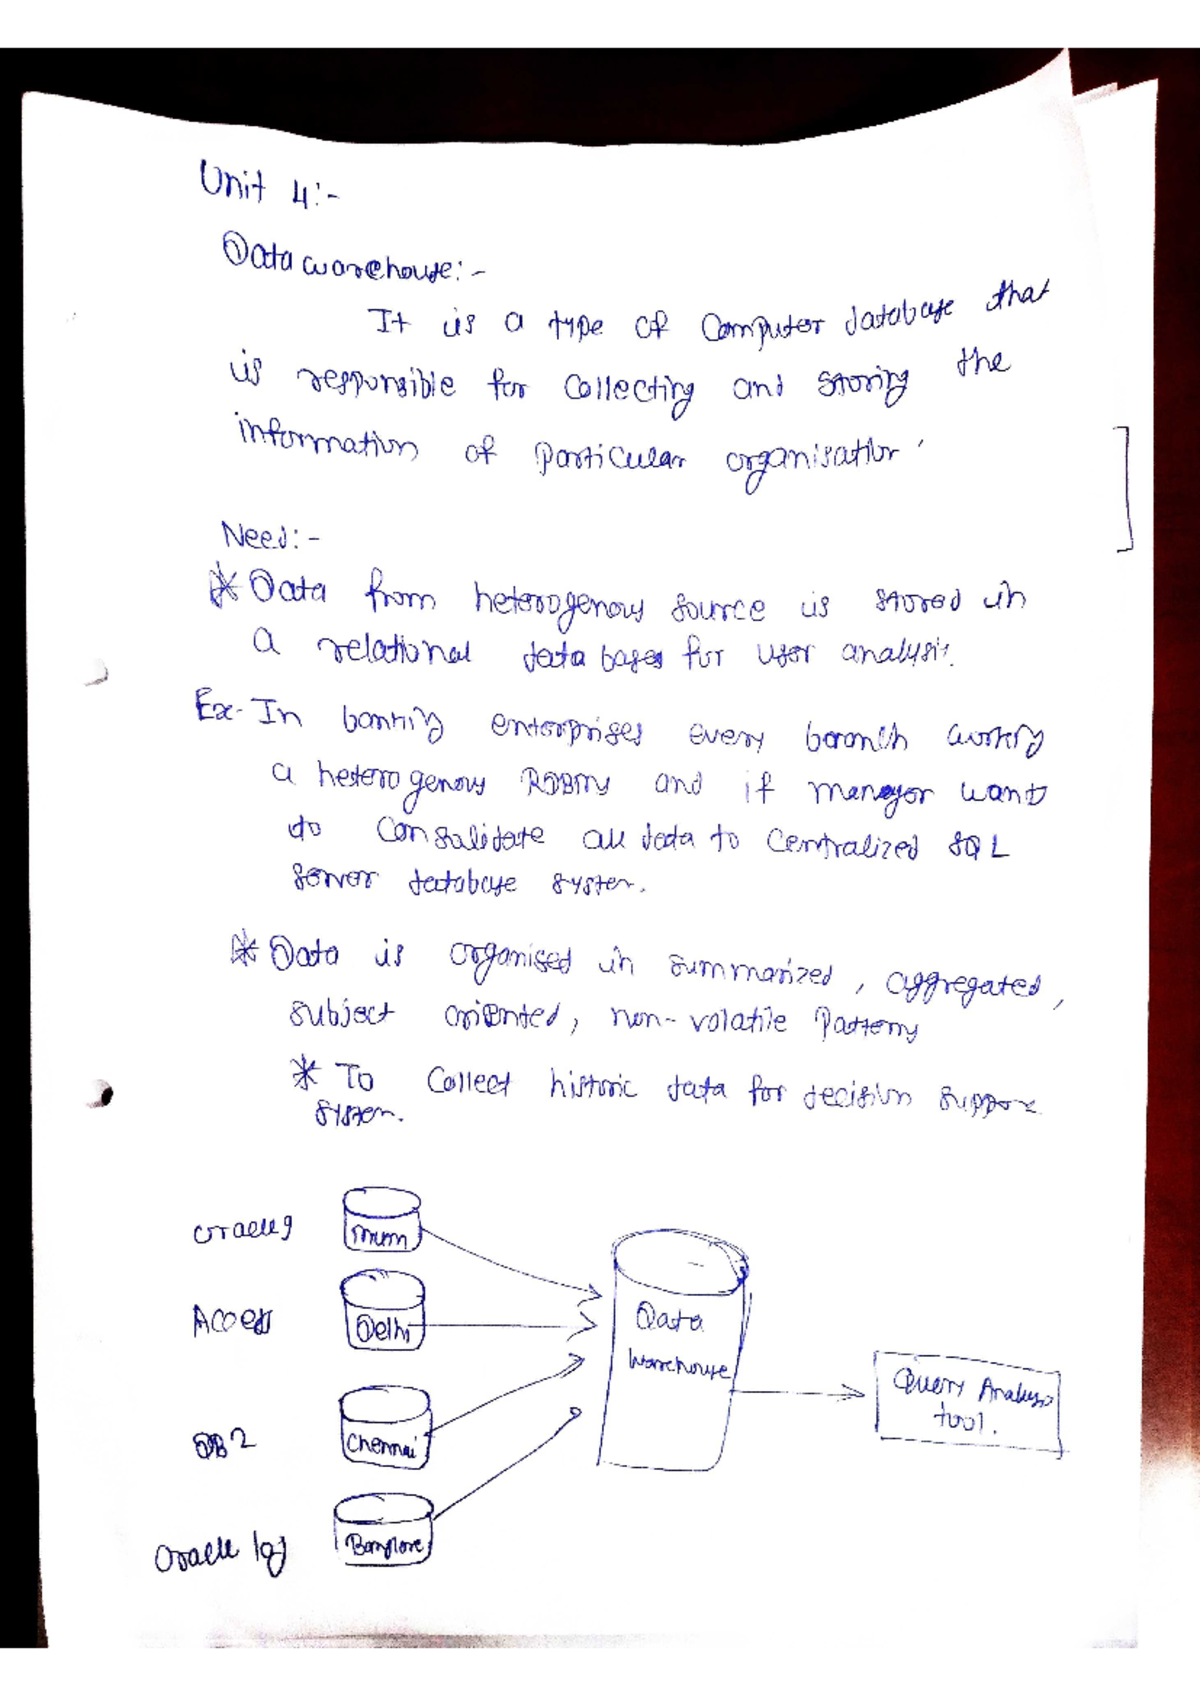 Unit 4:-
Datawarehouse:-
It is a type of Computer database that
is responsible for collecting and storing the
information of particular organisation.
Need:-
* Data from heterogenous source is stored in
a relational data bases for user analysis.
Ex- In banking enterprises every branch
a heterogenous RDBMS and if manager want
to Consalidate all data to Centralized SQL
server database system.
* Data is organised in summarized, aggregated,
subject oriented, non-volatile patterns
* To Collect historic data for decision support
system.
Mum
Access Delhi
DB2 Chennai
Oracle Banglore
Data
Warehouse
Query Analysis
tool.